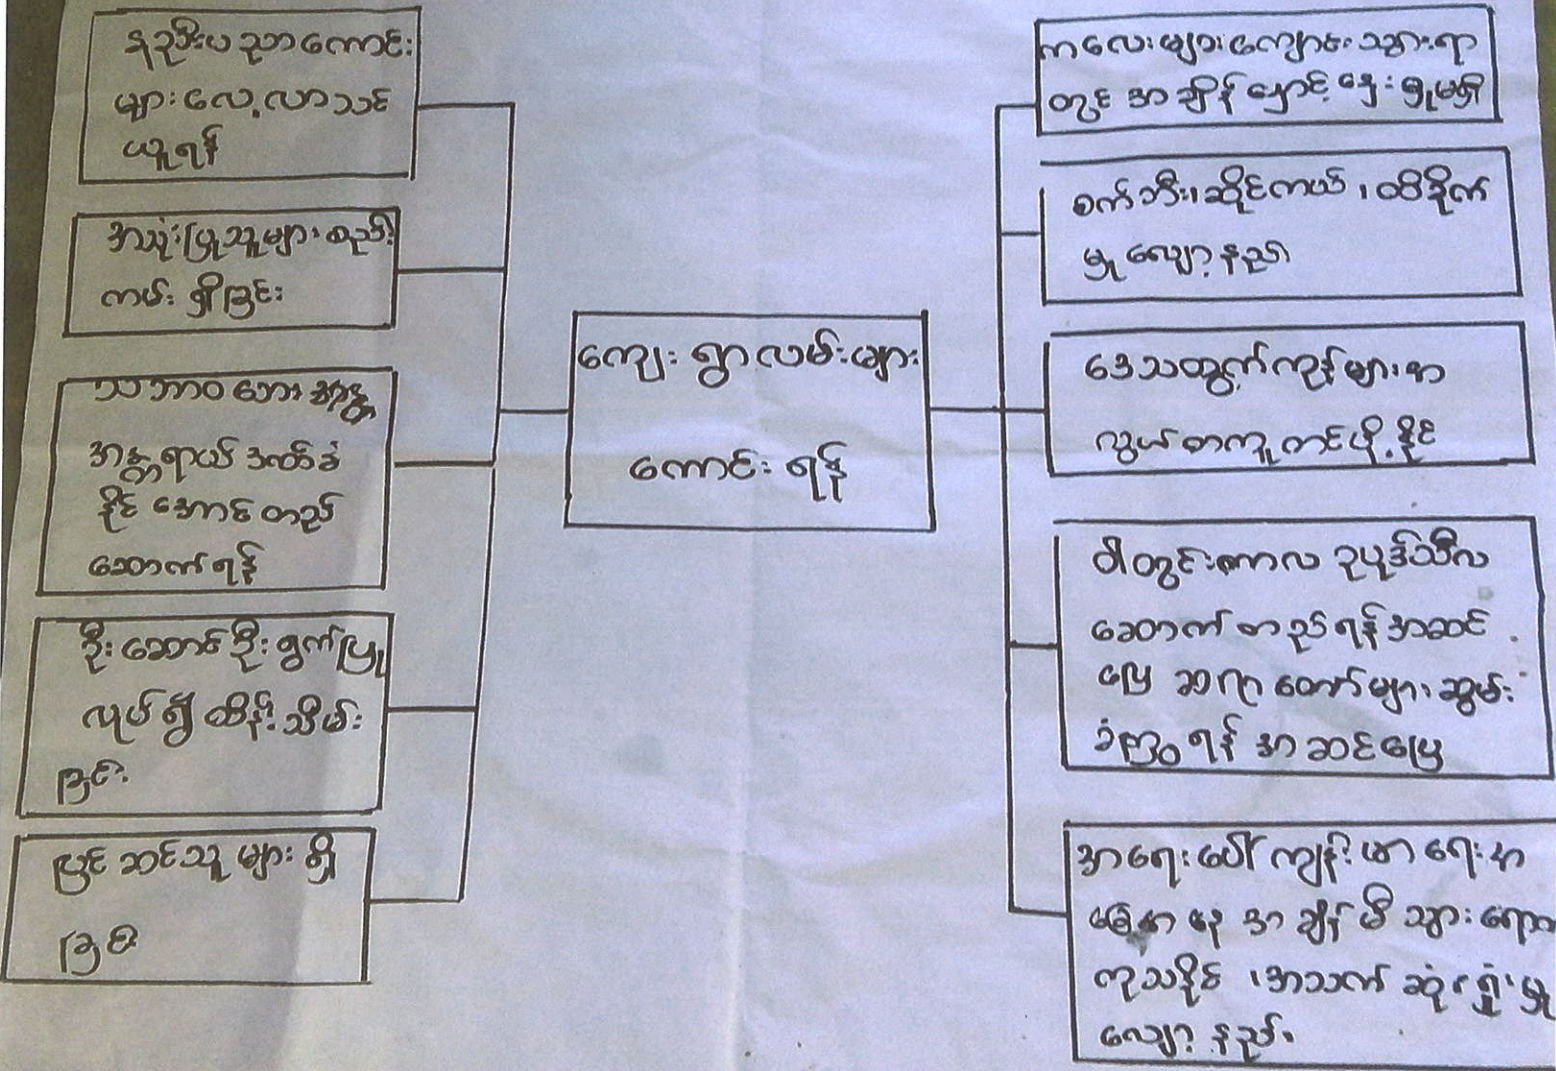 နည်းပညာကောင်း
များလေ့လာသင်
ယူရန်
အသုံးပြုသူများစည်း
ကမ်းရှိခြင်း
သဘာဝဘေး
အန္တရာယ်ဒဏ်ခံ
နိုင်အောင်တည်
ဆောက်ရန်
ဦးဆောင်ဦးရွက်ပြု
လုပ်၍ထိန်းသိမ်း
ခြင်း
ပြင်ဆင်သူများရှိ
ခြင်း
ကျေးရွာလမ်းများ
ကောင်းရန်
ကလေးများကျောင်းသွားရာ
တွင်အချိန်နှောင့်နှေးမှုမရှိ
စက်ဘီး၊ဆိုင်ကယ်၊ထိခိုက်
မှုလျော့နည်း
ဒေသထွက်ကုန်များအ
လွယ်တကူတင်ပို့နိုင်
ဝါတွင်းကာလဥပုဒ်သီလ
ဆောက်တည်ရန်အဆင်
ပြေဆရာတော်များဆွမ်း
ခံကြွရန်အဆင်ပြေ
အရေးပေါ်ကျန်းမာရေးအ
ခြေအနေအချိန်မီသွားရောက်
ကုသနိုင်၊အသက်ဆုံးရှုံးမှု
လျော့နည်း